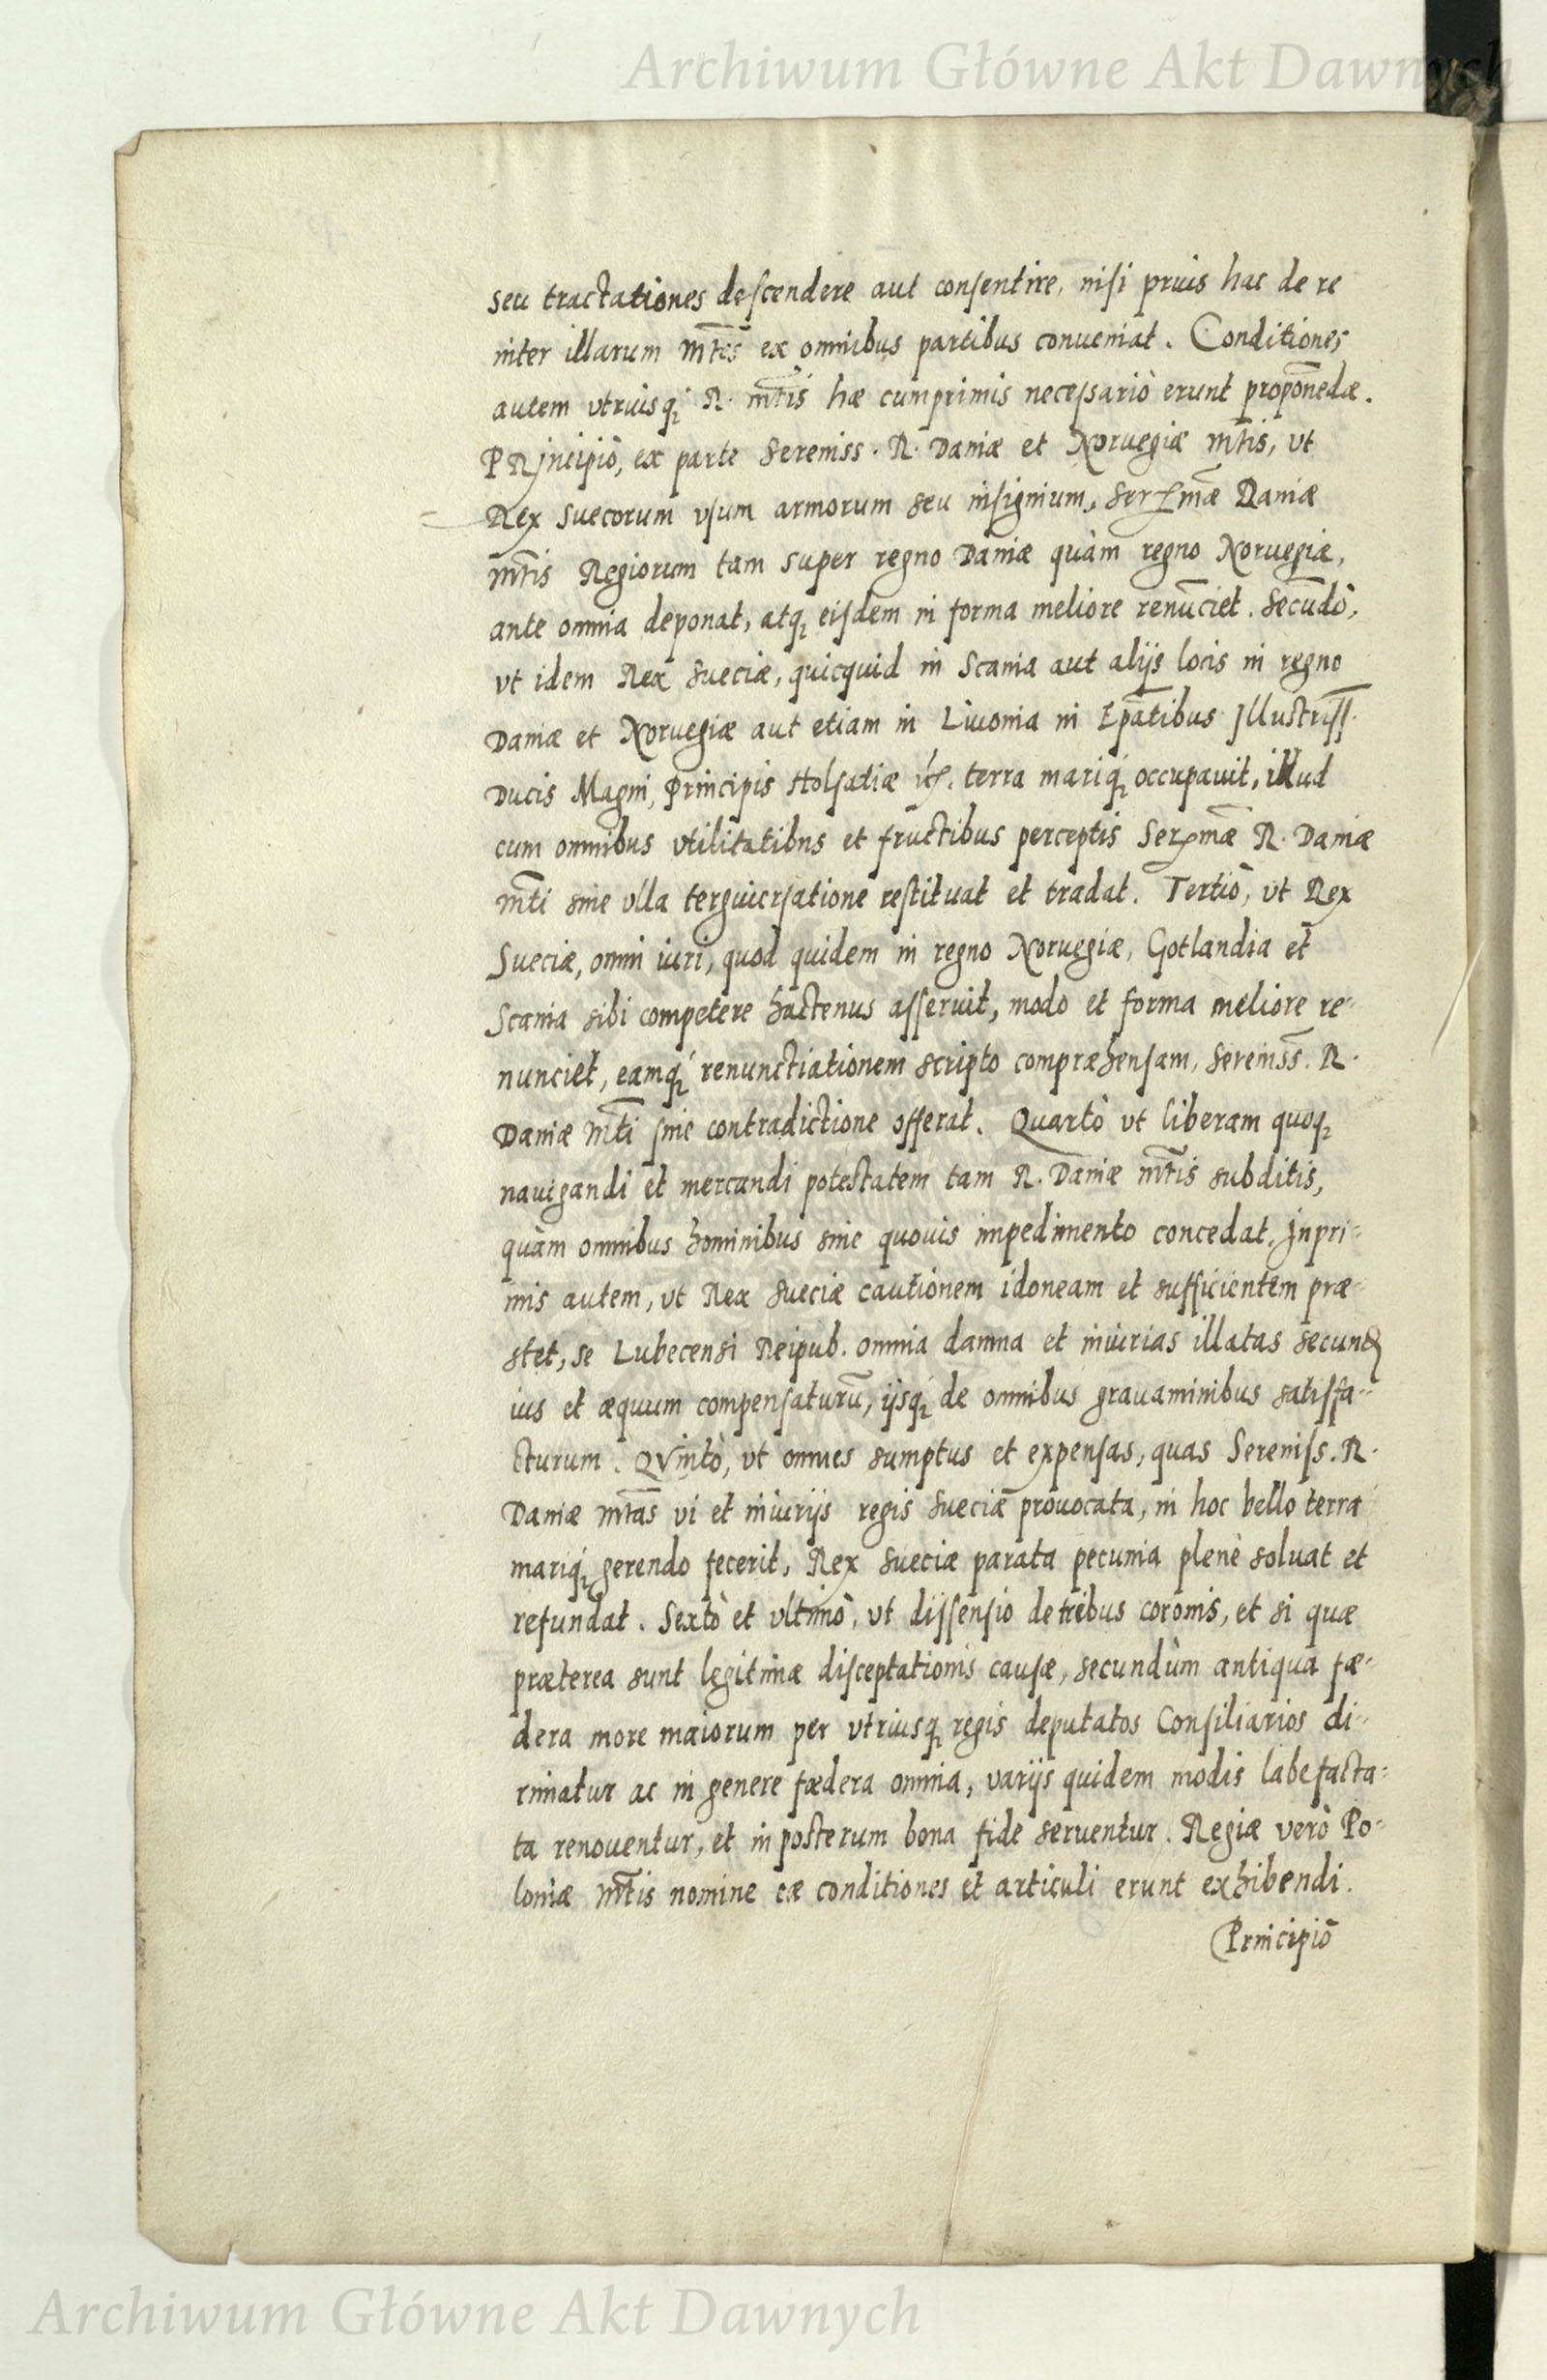 Archiwum Główne Akt Dawnych
seu tractationes descendere aut consentire, nisi prius hac de re
inter illarum Mtes ex omnibus partibus conueniat. Conditiones
autem vtriusq; R. Mtis hæ cumprimis necessariò erunt proponedæ.
PRjncipiò, ex parte Sereniss. R. Daniæ et Noruegiæ Mtis, vt
Rex Suecorum vsum armorum seu insignium, Sermæ Daniæ
Mtis Regiorum tam super regno Daniæ quàm regno Noruegiæ,
ante omnia deponat, atq; eisdem in forma meliore renūciet. Secūdò,
vt idem Rex Sueciæ, quicquid in Scania aut alijs locis in regno
Daniæ et Noruegiæ aut etiam in Liuonia in Epātibus Jllustriss.
Ducis Magni, Principis Holsatiæ etc. terra mariq; occupauit, illud
cum omnibus vtilitatibus et fructibus perceptis Sermæ R. Daniæ
Mti sine vlla tergiuersatione restituat et tradat. Tertiò, vt Rex
Sueciæ, omni iuri, quod quidem in regno Noruegiæ, Gotlandia et
Scania sibi competere hactenus asseruit, modo et forma meliore re-
nunciet, eamq; renunctiationem scripto compræhensam, Sereniss. R.
Daniæ Mti sine contradictione offerat. Quartò vt liberam quoq;
nauigandi et mercandi potestatem tam R. Daniæ Mtis subditis,
quàm omnibus hominibus sine quouis impedimento concedat. Jnpri-
mis autem, vt Rex Sueciæ cautionem idoneam et sufficientem præ-
stet, se Lubecensi Reipub. omnia damna et iniurias illatas secund
ius et æquum compensaturū, ijsq; de omnibus grauaminibus satisfa-
cturum. QVintò, vt omnes sumptus et expensas, quas Sereniss. R.
Daniæ Mtas vi et iniurijs regis Sueciæ prouocata, in hoc bello terra
mariq; gerendo fecerit, Rex Sueciæ parata pecunia plenè soluat et
refundat. Sextò et vltimò, vt dissensio de tribus coronis, et si quæ
præterea sunt legitimæ disceptationis causæ, secundùm antiqua fæ-
dera more maiorum per vtriusq; regis deputatos Consiliarios di-
rimatur ac in genere fœdera omnia, varijs quidem modis labefacta-
ta renouentur, et in posterum bona fide seruentur. Regiæ verò Po-
loniæ Mtis nomine eæ conditiones et articuli erunt exhibendi.
Principiò
Archiwum Główne Akt Dawnych